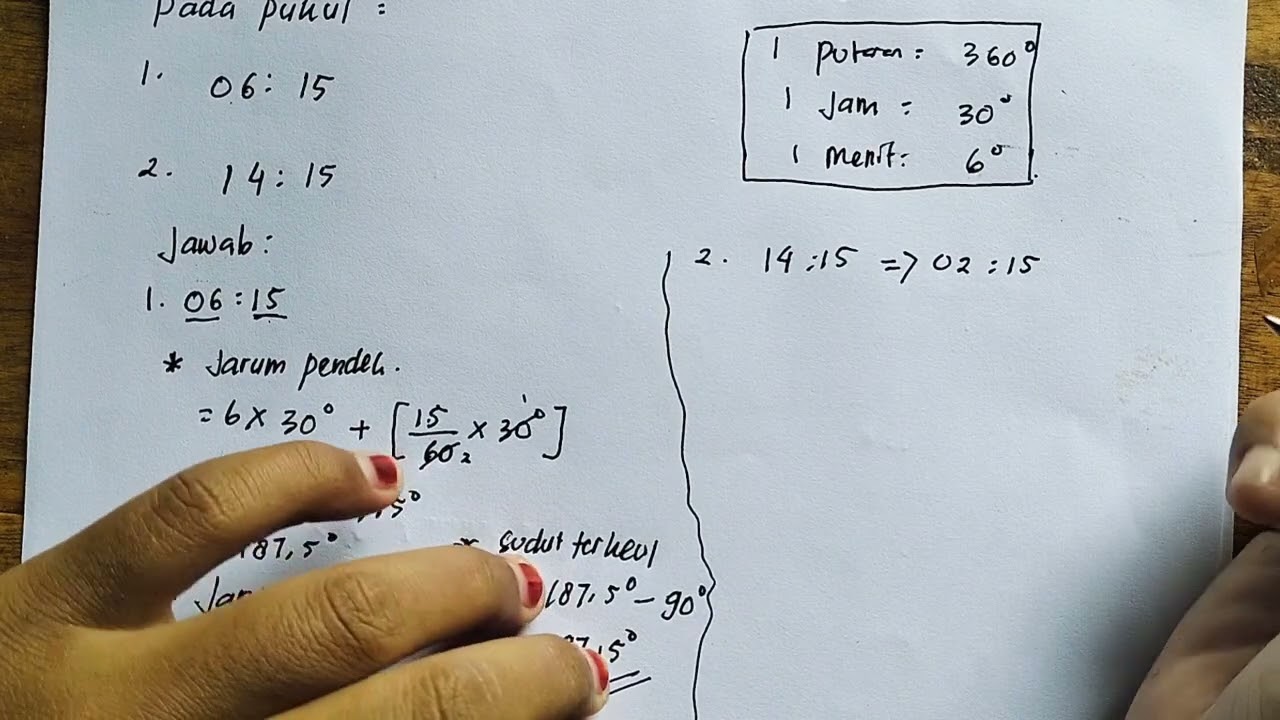 Pada pukul :
1. 06 : 15
2. 14 : 15
Jawab :
1. 06 : 15
* Jarum pendek.
= 6 × 30° + [15/60₂ × 30°¹]
,5°
187,5°
* sudut terkecil
187,5° - 90°
,5°
1 Putaran = 360°
1 Jam = 30°
1 Menit = 6°
2. 14 : 15 => 02 : 15